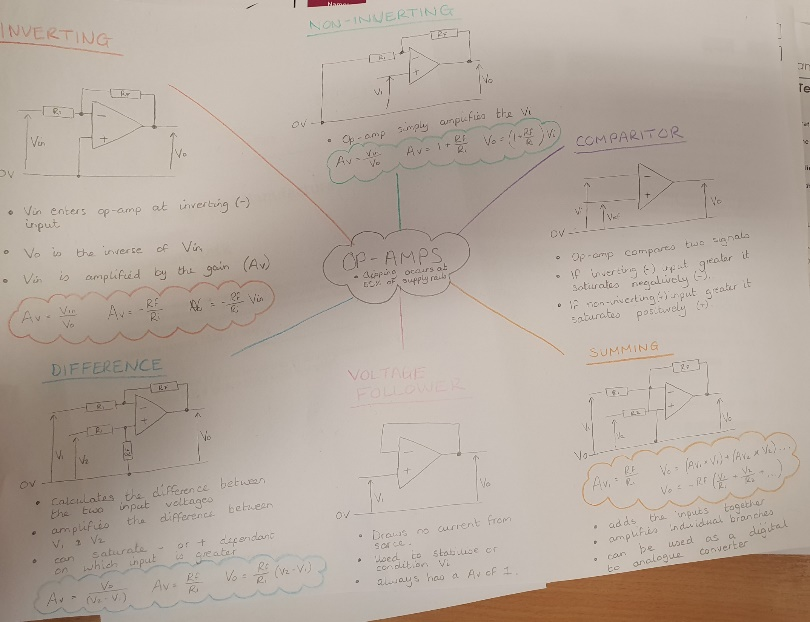 INVERTING
Ri
RF
Vin
Vo
OV
• Vin enters op-amp at inverting (-)
input
• Vo is the inverse of Vin
• Vin is amplified by the gain (Av)
Av = Vin/Vo Av = -RF/Ri = -RF/Ri Vin
NON-INVERTING
Ri
RF
Vi
Vo
OV
• Op-amp simply amplifies the Vi
Av = Vin/Vo Av = 1 + RF/Ri Vo = (1 + RF/Ri) Vi
COMPARITOR
Vo
OV
• Op-amp compares two signals
• If inverting (-) input greater it
saturates negatively (-),
• If non-inverting (+) input greater it
saturates positively (+)
OP-AMPS
• clipping occurs at
of supply rails
DIFFERENCE
Ri
RF
Ri
V1
V2
Vo
OV
• Calculates the difference between
the two input voltages
• amplifies the difference between
V1 & V2
• can saturate - or + dependant
on which input is greater
Av = Vo/ Av = RF/Ri Vo = RF/Ri (V2-V1)
VOLTAGE
FOLLOWER
Vi
Vo
OV
• Draws no current from
• Used to stabilise or
condition Vi
• always has a Av of 1.
SUMMING
RF
R1
R2
V1
V2
Vo
Vo
Av1 = RF/Ri Vo = (Av1 x V1) + (Av2 x V2)...
Vo = -RF (V1/R1 + V2/R2 + ...)
• adds the inputs together
• amplifies individual branches
• can be used as a digital
to analogue converter
Name
Te